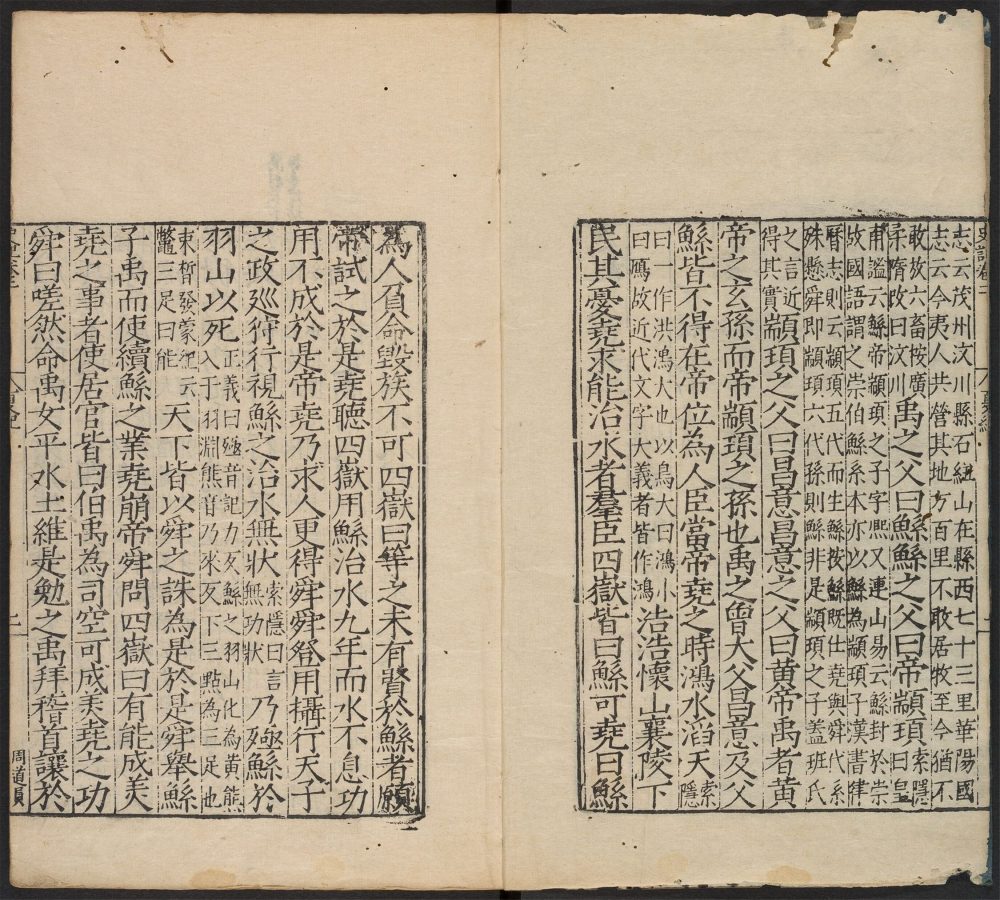 史記卷二
夏紀
志云茂州汶川縣石紐山在縣西七十三里華陽國
志云今夷人共營其地方百里不敢居牧至今猶不
敢放六畜按廣柔隋改曰汶川禹之父曰鯀鯀之父曰帝顓頊索隱曰皇
甫謐云鯀帝顓頊之子字熙又連山易云鯀封於崇
故國語謂之崇伯鯀系本亦以鯀為顓頊子漢書律
曆志則云顓頊五代而生鯀按鯀既仕堯與舜代系
殊懸舜即顓頊六代孫則鯀非是顓頊之子蓋班氏
之言近得其實顓頊之父曰昌意昌意之父曰黃帝禹者黃
帝之玄孫而帝顓頊之孫也禹之曾大父昌意及父
鯀皆不得在帝位為人臣當帝堯之時鴻水滔天索隱
曰一作洪鴻大也以鳥大曰鴻小曰鴈故近代文字大義者皆作鴻浩浩懷山襄陵下
民其憂堯求能治水者羣臣四嶽皆曰鯀可堯曰鯀
為人負命毀族不可四嶽曰等之未有賢於鯀者願
帝試之於是堯聽四嶽用鯀治水九年而水不息功
用不成於是帝堯乃求人更得舜舜登用攝行天子
之政巡狩行視鯀之治水無狀索隱曰言無功狀乃殛鯀於
羽山以死正義曰殛音記力反鯀之羽山化為黃熊入于羽淵熊音乃來反下三點為三足也
束皙發蒙紀云鱉三足曰熊天下皆以舜之誅為是於是舜舉鯀
子禹而使續鯀之業堯崩帝舜問四嶽曰有能成美
堯之事者使居官皆曰伯禹為司空可成美堯之功
舜曰嗟然命禹女平水土維是勉之禹拜稽首讓於
周道員